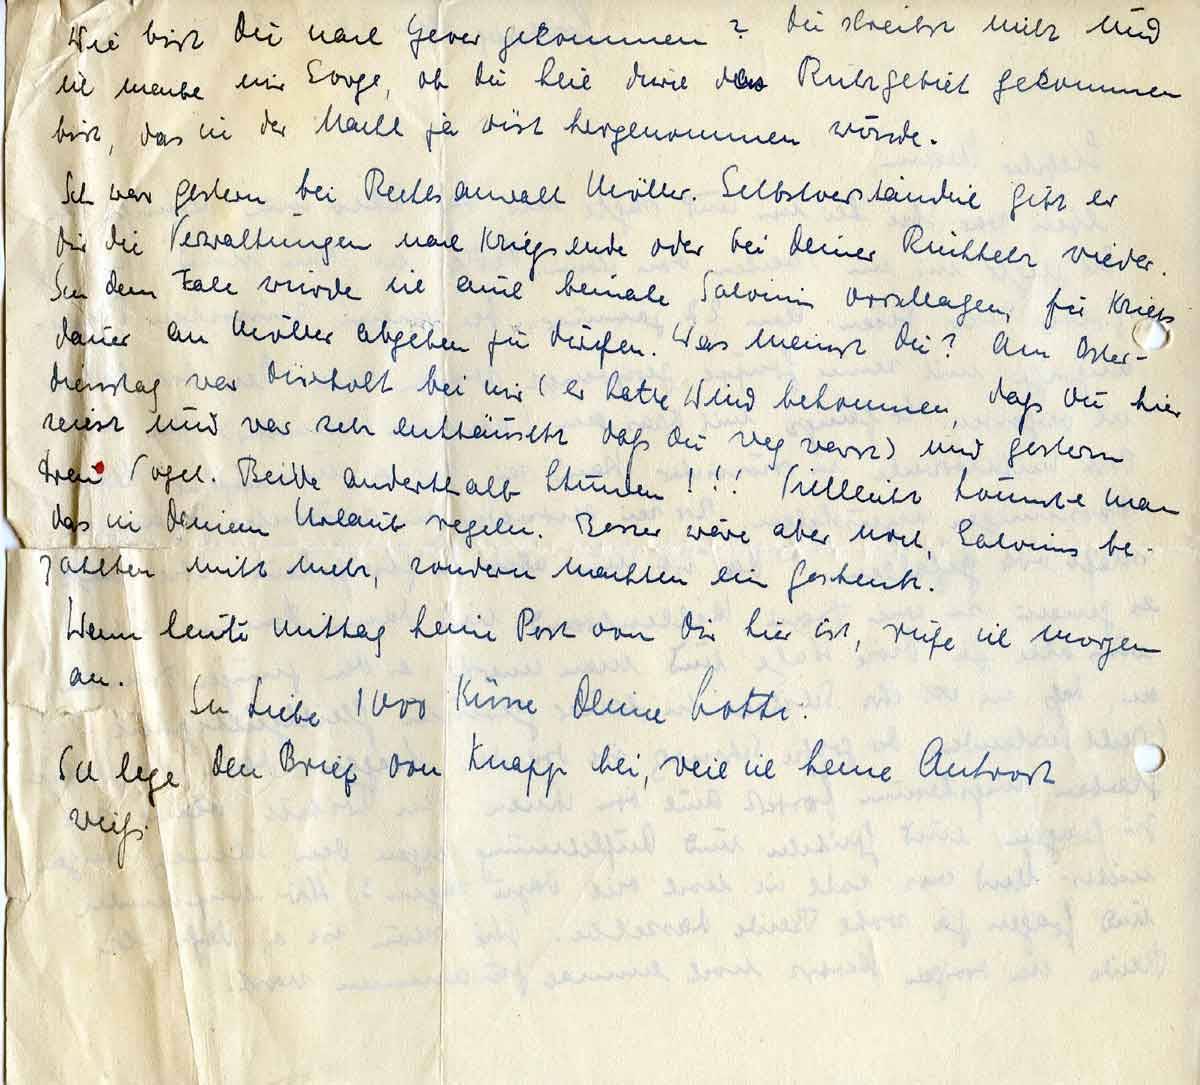 Wie bist Du nach Jever gekommen? Du schreibst nichts und
ich mache mir Sorge, ob Du heil durch das Ruhrgebiet gekommen
bist, das in der Nacht ja wüst hergenommen wurde.
Ich war gestern bei Rechtsanwalt Möller. Selbstverständlich gibt er
Dir die Verwaltungen nach Kriegsende oder bei Deiner Rückkehr wieder.
In dem Falle würde ich auch beinahe Salomin vorschlagen, für Kriegs-
dauer an Möller abgeben zu dürfen. Was meinst Du? Am Oster-
dienstag war bei mir (er hatte Wind bekommen, dass Du hier
seiest und war sehr enttäuscht dass Du weg warst) und gestern
Frau Vogel. Beide anderthalb Stunden!!! Vielleicht könnte man
das in Deinem Urlaub regeln. Besser wäre aber noch, be-
zahlten nicht mehr, sondern machten ein Geschenk.
Wenn heute Mittag keine Post von Dir hier ist, rufe ich morgen
an.
In Liebe 1000 Küsse Deine Lotte.
Ich lege den Brief von Knapp bei, weil ich keine Antwort
weiß.